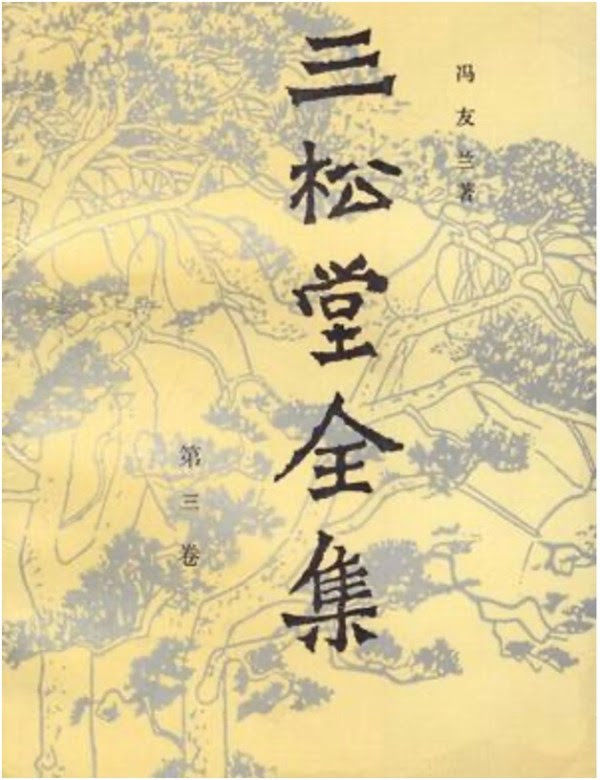 冯友兰著
三松堂全集
第三卷